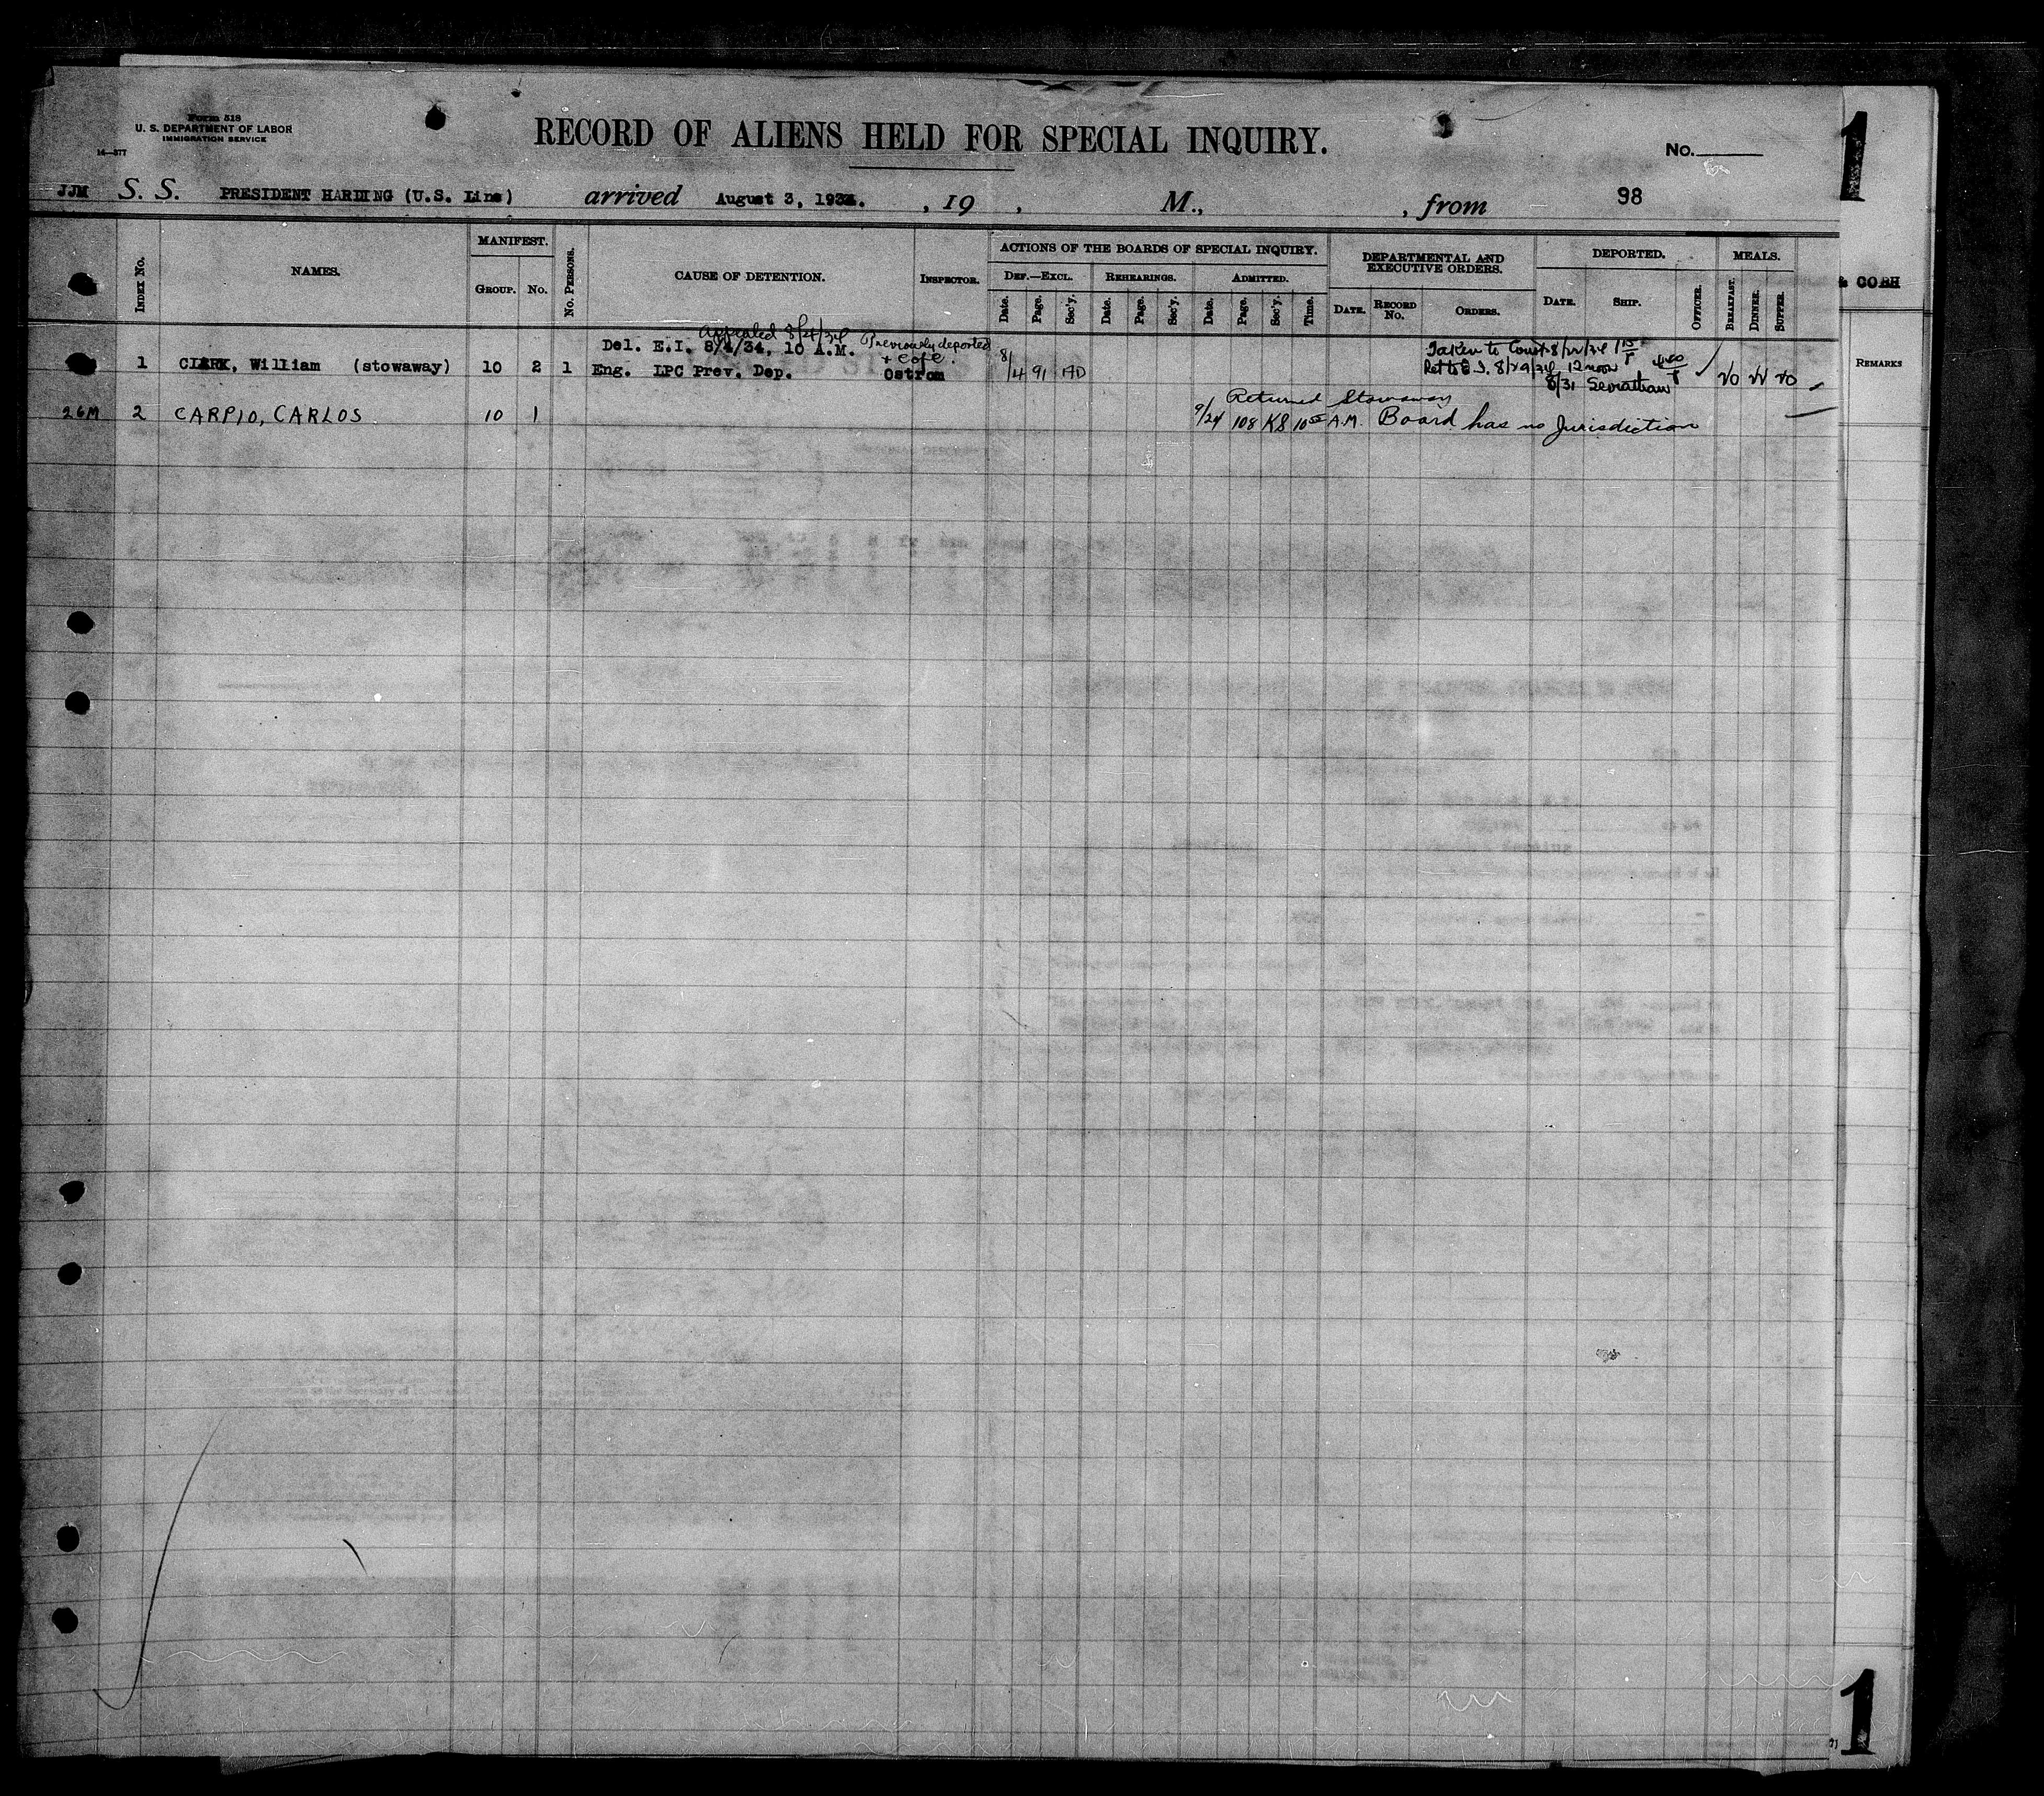 Form 518
U. S. DEPARTMENT OF LABOR
IMMIGRATION SERVICE
14—377
RECORD OF ALIENS HELD FOR SPECIAL INQUIRY.
No.
1
JJM S. S. PRESIDENT HARDING (U.S. Line) arrived August 3, 1934. , 19 , M., , from 98
INDEX NO. NAMES. MANIFEST. GROUP. NO. NO. PERSONS. CAUSE OF DETENTION. INSPECTOR. ACTIONS OF THE BOARDS OF SPECIAL INQUIRY. DEPARTMENTAL AND EXECUTIVE ORDERS. DEPORTED. MEALS.
DEF.—EXCL. REHEARINGS. ADMITTED.
Date. Page. Sec'y. Date. Page. Sec'y. Date. Page. Sec'y. Time. DATE. RECORD NO. ORDERS. DATE. SHIP. OFFICER. BREAKFAST. DINNER. SUPPER.
& COBH
REMARKS
Appealed 8/4/34 Previously deported
Del. E.I. 8/4/34, 10 A.M. Taken to Court 8/22/34
1 CLARK, William (stowaway) 10 2 1 Eng. LPC Prev. Dep. Ostrom 8/4 91 Ret to E.I. 8/29/34 12 noon
8/31 Leviathan
Returned Stowaway
26M 2 CARPIO, CARLOS 10 1 9/24 108 KS 10 A.M. Board has no Jurisdiction
1